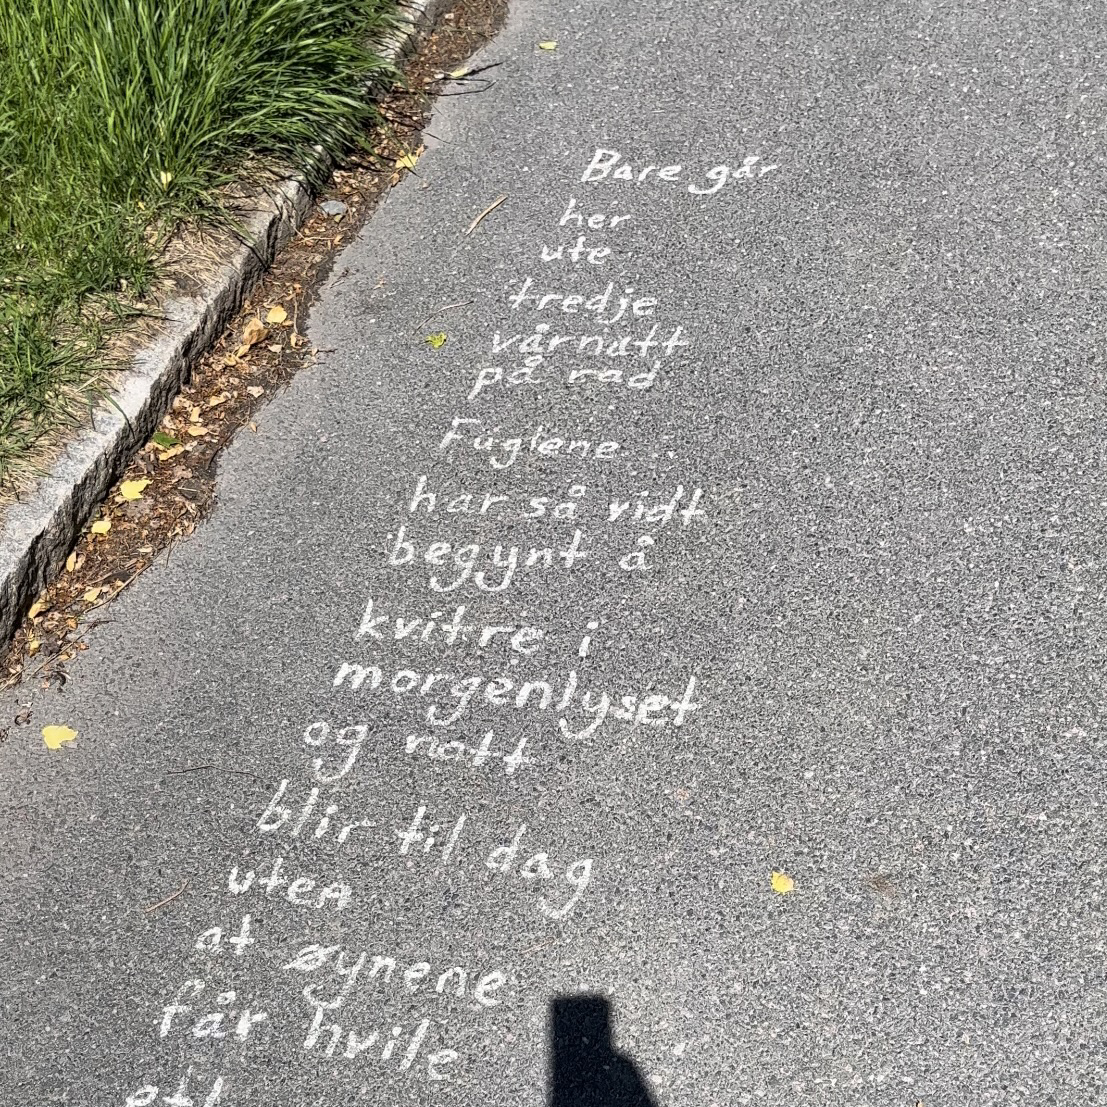 Bare går
her
ute
tredje
vårnatt
på rad
Fuglene
har så vidt
begynt å
kvitre i
morgenlyset
og natt
blir til dag
uten
at øynene
får hvile